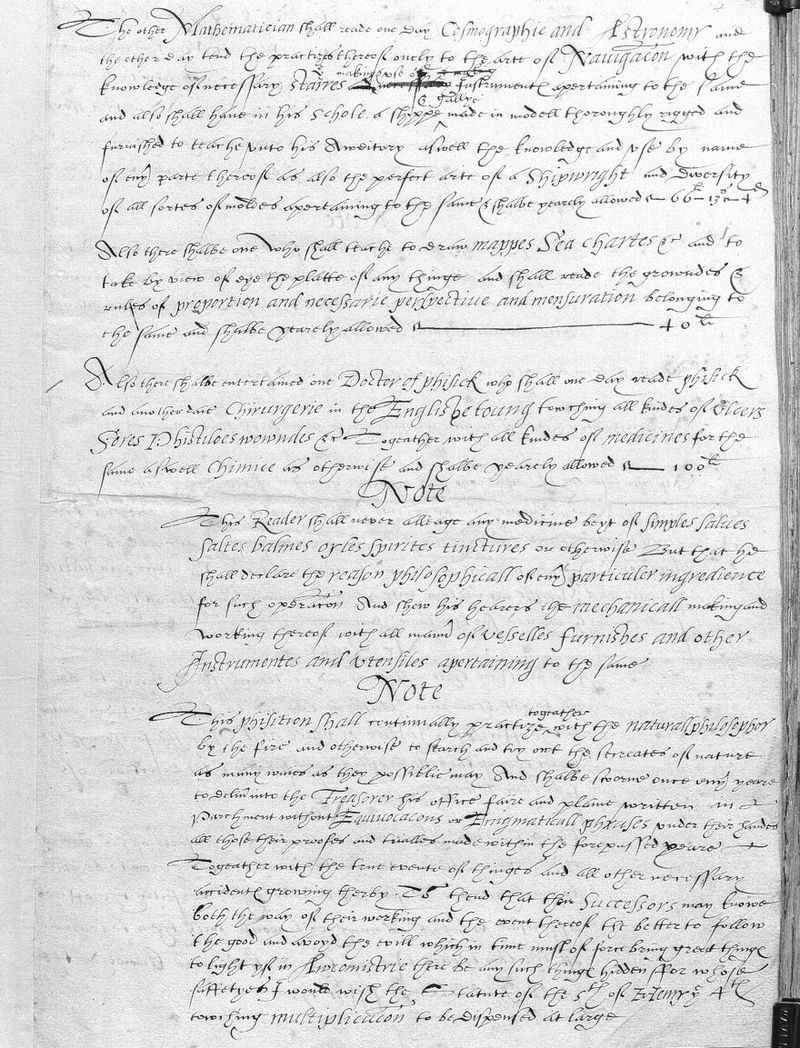 The other Mathematician shall reade one day Cosmographie and Astronomy and
the other day tend the practize thereof onely to the arte of Navigacon with the
knowledge of necessary starres making use of Instrumentes apertaining to the same
& gallye
and also shall have in his Schole a shippe made in modell thoroughly rigged and
furnished to teache unto his Aweditory aswell the knowledge and use by name
of eny parte thereof as also the perfect arte of a Shipwright and diversity
of all sortes of moldes apertaining to the same & shalbe yearely allowed 66li 13s 4d
Also there shalbe one who shall teache to draw mappes Sea chartes &c and to
take by view of eye the platte of any thinge and shall reade the growndes &
rules of proportion and necessarie perspective and mensuration belonging to
the same and shalbe yearely allowed 40li
Also there shalbe entertained one Doctor of phisick who shall one day reade phisick
and another daie Chirurgerie in the Englishe toung towching all kindes of Ulcers
Sores Phistiloes wowndes &c Togeather with all kindes of medicines for the
same aswell Chimice as otherwise and shalbe yearely allowed 100li
Note
This Reader shall never alleage any medicine beyt of simples salves
saltes balmes oyles spirites tinctures or otherwise But that he
shall declare the reason philosophicall of eny particuler ingredience
for such operacon And shew his hearers the mechanicall making and
working thereof with all maner of vesselles furnishes and other
Instrumentes and utensiles apertaining to the same
Note
This phisition shall continually practize togeather with the naturall philosophor
by the fire and otherwise to search and try out the secreates of nature
as many waies as they possiblie may And shalbe sworne once every yeare
to deliver into the Treasorer his office faire and plaine written in
Parchment without Equivocacons or Enigmaticall phrases under their handes
all those their prooses and trialles made within the forepassed yeare
Togeather with the true evente of thinges and all other necessary
accidentes growing therby To thend that their Successors may knowe
both the way of their working and the event thereof the better to follow
the good and avoyd the evill which in time must of force bring great thinges
to light yf in Awcomistrie there be any such thinges hidden ffor whose
saffetyes I would wish the Statute of the 5th of Henry 4th
towching multiplicacon to be dispensed at large